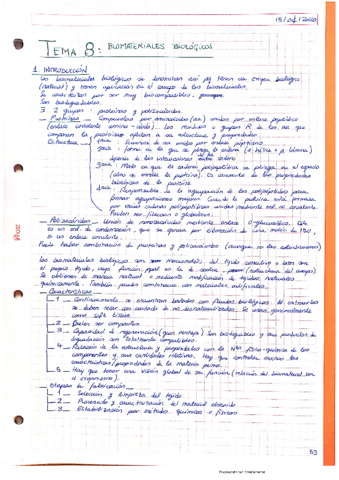 15/04/2020
TEMA 8: BIOMATERIALES BIOLÓGICOS
1. INTRODUCCIÓN
Los biomateriales biológicos se denominan así pq tienen un origen biológico
(natural) y tienen aplicación en el campo de los biomateriales.
Se caracterizan por ser muy biocompatibles.
Son biodegradables.
2 grupos: proteínas y polisacáridos.
- Proteínas → Compuestos por aminoácidos (aa) unidos por enlace peptídico
(enlace covalente amino-ácido). Los residuos o grupos R de los aa que
componen la proteína afectan a su estructura y propiedades.
Estructura
1aria: Secuencia de aa unidos por enlace peptídico.
2aria: Forma en la que se pliega la cadena (α-hélice y β-lámina)
depende de las interacciones entre
3aria: Modo en que la cadena polipeptídica se pliega en el espacio
(cómo se enrolla la proteína). Es causante de las propiedades
biológicas de la proteína.
4aria: Responsable de la agrupación de los polipéptidos para
formar agrupaciones mayores. Cuando la proteína está formada
por varias cadenas polipeptídicas unidas mediante enl. no covalente.
Pueden ser fibrosas o globulares.
- Polisacáridos → Unión de monosacáridos mediante enlace O-glucosídico. Este
es un enl. de condensación, que se genera por liberación de una molec. de H2O,
es un enlace covalente.
Puede haber combinación de proteínas y polisacáridos
Los biomateriales biológicos o bien son
el propio tejido, cuya función
Se obtienen de manera natural o mediante modificación de tejidos naturales
químicamente. También pueden combinarse con materiales sintéticos.
Características
1. Continuamente se encuentran bañados con fluidos biológicos. Al extraerlos
se deben tener con cuidado de no desnaturalizarlos. Se usan generalmente
como soft tissue.
2. Suelen ser composites
3. Capacidad de regeneración (gran ventaja). Son biodegradables y sus productos de
degradación son totalmente compatibles.
4. Relación de la estructura y propiedades con la
componentes y sus cantidades relativas. Hay que controlar mucho las
características/propiedades de la materia prima.
5. Hay que tener una visión global de su función (relación del biomaterial con
el organismo).
Etapas de fabricación
1. Selección y biopsia del tejido
2. Procesado y caracterización del material obtenido
3. Estabilización por métodos químicos o físicos
53